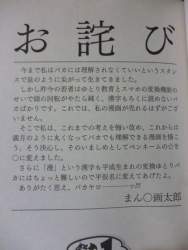 お詫び
今まで私はバカには理解されなくていいというスタン
スで頂のように尖がって生きてきました。
しかし昨今の若者はゆとり教育とスマホの変換機能の
せいで頭の回転がやたら鈍く、漢字もろくに読めないバ
カばかりです。これでは、私の漫画が売れるはずがござ
いません。
そこで私は、これまでの考えを悔い改め、これからは
満月のように丸くなってバカでも理解できる漫画を描こ
う。そう決心し、そのいましめとしてペンネームの◯を
○に変えました。
さらに「漫」という漢字も平成生まれの変換ゆとりバ
カにはちょっと難しいので平仮名に変えてあげたよ。
ありがたく思え、バカヤロ――ッ!!
まん○画太郎